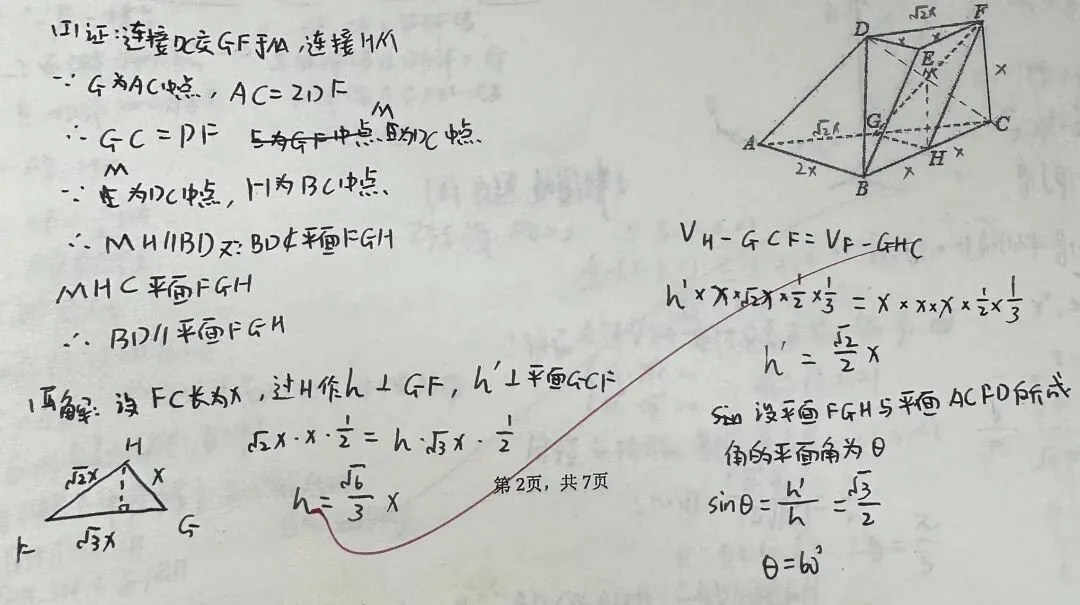 (I)证:连接DC交GF于M,连接HM
∵ G为AC中点, AC=2DF
∴ GC=DF M为DC中点.
∵ M为DC中点, H为BC中点.
∴ MH∥BD 又∵BD⊄平面FGH
MH⊂平面FGH
∴ BD∥平面FGH
解: 设FC长为x, 过H作h⊥GF, h'⊥平面GCF
√2x·x·1/2=h·√3x·1/2
h=√6/3 x
H
√2x x
F √3x G
√2x F
D
E
x
G
√2x
A C
H x
2x x
B
V H-GCF=V F-GHC
h'×x×√2x×1/2×1/3=x×x×x×1/2×1/3
h'=√2/2 x
设平面FGH与平面ACFD所成
角的平面角为θ
sinθ=h'/h=√3/2
θ=60°
第2页, 共7页